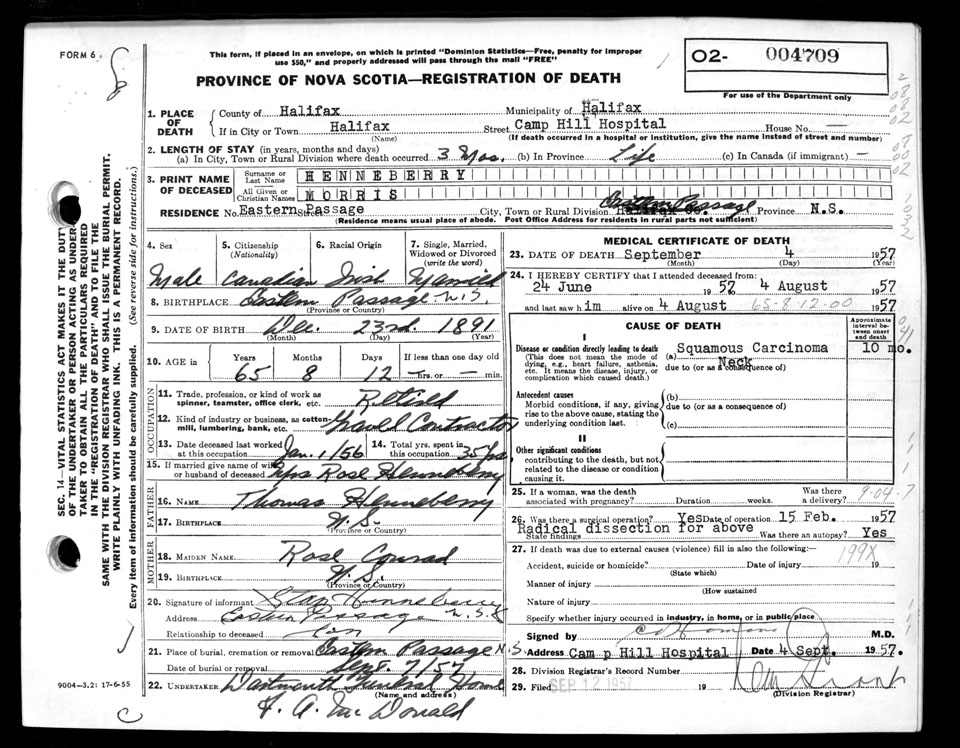 FORM 6
This form, if placed in an envelope, on which is printed "Dominion Statistics—Free, penalty for improper
use $50," and properly addressed will pass through the mail "FREE"
PROVINCE OF NOVA SCOTIA—REGISTRATION OF DEATH
02- 004709
For use of the Department only
SEC. 14—VITAL STATISTICS ACT MAKES IT THE DUTY
OF THE UNDERTAKER OR PERSON ACTING AS UNDER-
TAKER TO OBTAIN ALL THE PARTICULARS REQUIRED
IN THE "REGISTRATION OF DEATH" AND TO FILE THE
SAME WITH THE DIVISION REGISTRAR WHO SHALL ISSUE THE BURIAL PERMIT.
WRITE PLAINLY WITH UNFADING INK. THIS IS A PERMANENT RECORD.
Every item of information should be carefully supplied. (See reverse side for instructions.)
1. PLACE OF DEATH
County of Halifax Municipality of Halifax
If in City or Town Halifax Street Camp Hill Hospital House No. —
(Name) (If death occurred in a hospital or institution, give the name instead of street and number)
2. LENGTH OF STAY (in years, months and days)
(a) In City, Town or Rural Division where death occurred 3 Mos. (b) In Province Life (c) In Canada (if immigrant) —
3. PRINT NAME OF DECEASED
Surname or Last Name HENNEBERRY
All Given or Christian Names MORRIS
RESIDENCE No. Eastern Passage City, Town or Rural Division Halifax Co. Eastern Passage Province N.S.
(Residence means usual place of abode. Post Office Address for residents in rural parts not sufficient)
4. Sex 5. Citizenship (Nationality) 6. Racial Origin 7. Single, Married, Widowed or Divorced (write the word)
Male Canadian Irish Married
8. BIRTHPLACE Eastern Passage N.S.
(Province or Country)
9. DATE OF BIRTH Dec. 23rd. 1891
(Month) (Day) (Year)
10. AGE in Years Months Days If less than one day old
65 8 12 — hrs. or — min.
OCCUPATION
11. Trade, profession, or kind of work as spinner, teamster, office clerk, etc. Retired
12. Kind of industry or business, as cotton-mill, lumbering, bank, etc. Gravel Contractor
13. Date deceased last worked at this occupation Jan. 1/56 14. Total yrs. spent in this occupation 35 yrs
15. If married give name of wife or husband of deceased Mrs Rose Henneberry
FATHER
16. NAME Thomas Henneberry
17. BIRTHPLACE N.S.
(Province or Country)
MOTHER
18. MAIDEN NAME Rose Conrad
19. BIRTHPLACE N.S.
(Province or Country)
20. Signature of informant Stan Henneberry
Address Eastern Passage N.S.
Relationship to deceased Son
21. Place of burial, cremation or removal Eastern Passage N.S
Date of burial or removal Sept. 7/57
22. UNDERTAKER Dartmouth Funeral Home
(Name and address)
A. McDonald
9004-3.2: 17-6-55
MEDICAL CERTIFICATE OF DEATH
23. DATE OF DEATH September 4 1957
(Month) (Day) (Year)
24. I HEREBY CERTIFY that I attended deceased from:
24 June 1957 4 August 1957
and last saw him alive on 4 August 65-8-12-00 1957
CAUSE OF DEATH
Approximate interval between onset and death
I
Disease or condition directly leading to death (a) Squamous Carcinoma 10 mo.
Neck
(This does not mean the mode of dying, e.g., heart failure, asthenia, etc. It means the disease, injury, or complication which caused death.)
due to (or as a consequence of)
Antecedent causes
Morbid conditions, if any, giving rise to the above cause, stating the underlying condition last.
(b)
due to (or as a consequence of)
(c)
II
Other significant conditions
contributing to the death, but not related to the disease or condition causing it.
25. If a woman, was the death associated with pregnancy? Duration weeks. Was there a delivery?
26. Was there a surgical operation? Yes Date of operation 15 Feb. 1957
State findings Radical dissection for above Was there an autopsy? Yes
27. If death was due to external causes (violence) fill in also the following:— 199X
Accident, suicide or homicide? Date of injury 19
(State which)
Manner of injury
(How sustained)
Nature of injury
Specify whether injury occurred in industry, in home, or in public place
Signed by M.D.
Address Camp Hill Hospital Date 4 Sept. 1957.
28. Division Registrar's Record Number
29. Filed SEP 12 1957 19
(Division Registrar)